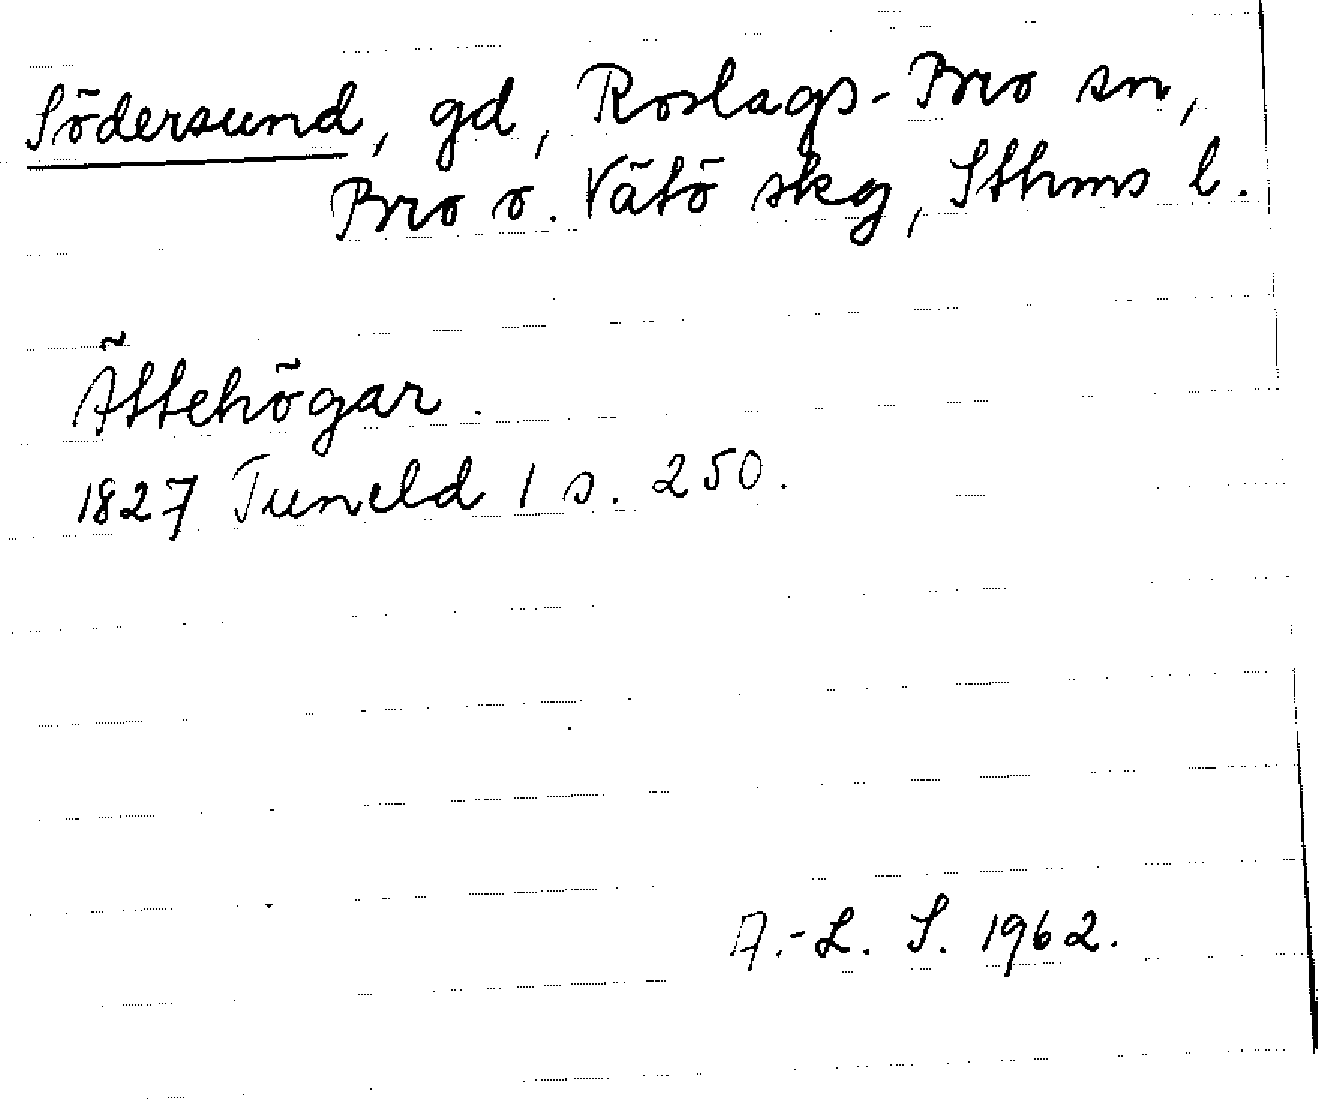 Södersund, gd, Roslags-Bro sn,
Bro o. Vätö skg, Sthms l.
Ättehögar.
1827 Tuneld 1 s. 250.
A.-L. S. 1962.